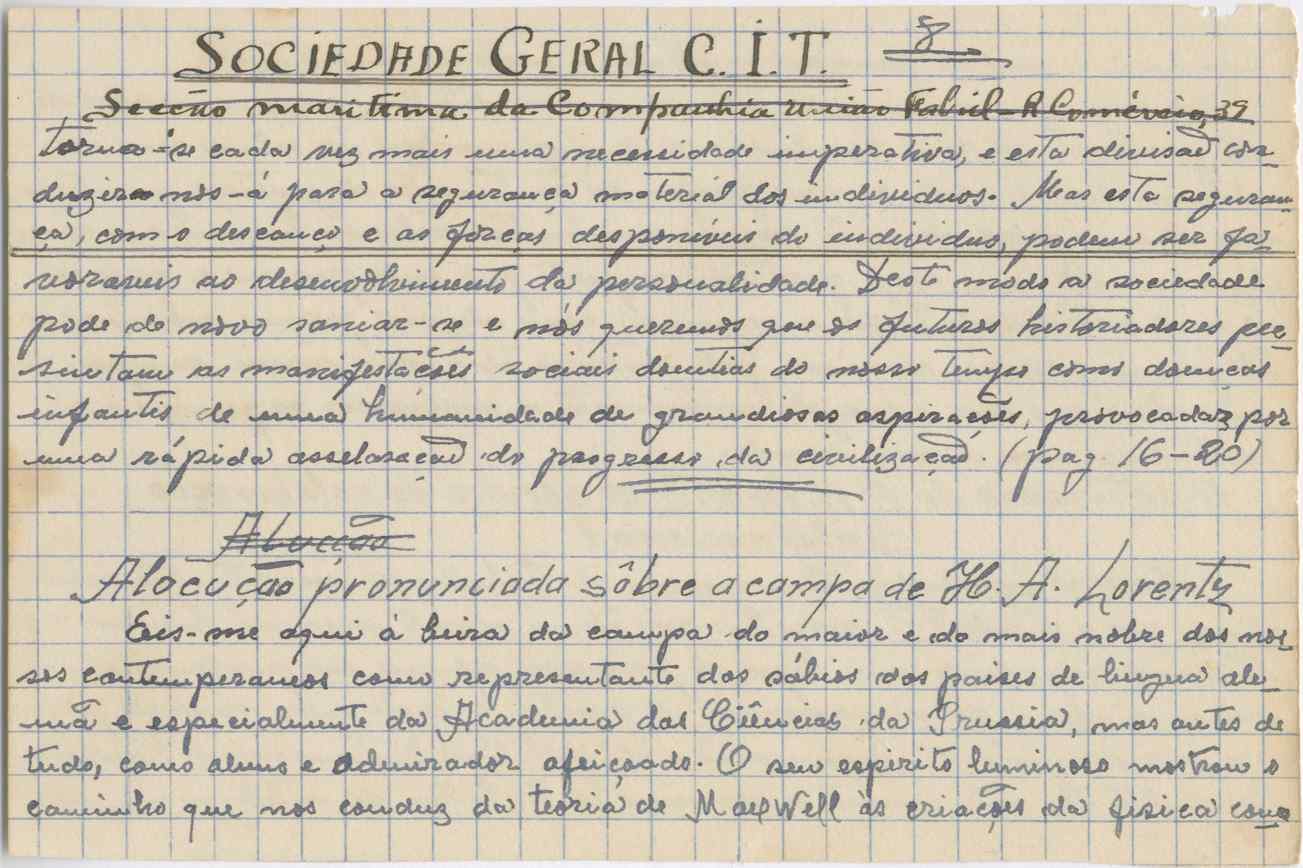 SOCIEDADE GERAL C. I. T. 8
Secção maritima da Companhia União Fabril - R Comércio, 39
torna-se cada vez mais uma necessidade imperativa, e esta divisão con-
duzira nos-á para a segurança material dos individuos. Mas esta seguran-
ça, como descanço e as fôrças desponíveis do individuo, podem ser fa-
voraveis ao desenvolvimento da personalidade. Deste modo a sociedade
pode de novo saniar-se e nós queremos que os futuros historiadores pre-
sintam as manifestações sociais doentias do nosso tempo como doenças
infantis de uma humanidade de grandiosas aspirações, provocadas por
uma rápida asselaração do progresso da civilização. (pag. 16-20)
Alocução
Alocução pronunciada sôbre a campa de H. A. Lorentz
Eis-me aqui á beira da campa do maior e do mais nobre dos nos-
sos contemperaneos como representante dos sábios dos paises de lingua ale-
mã e especialmente da Academia das Ciências da Prussia, mas antes de
tudo, como aluno e admirador afeiçoado. O seu espirito luminoso mostrou o
caminho que nos conduz da teoria de MaxWell às criações da fisica con-